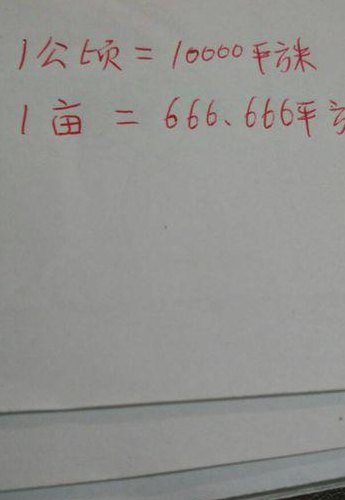 1公顷=10000平方米
1亩=666.666平方